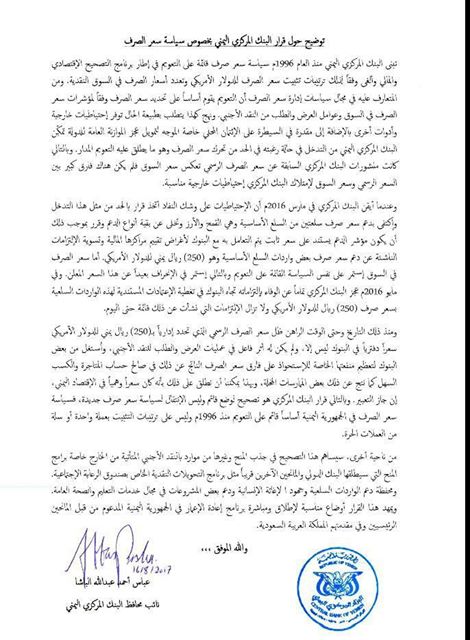 توضيح حول قرار البنك المركزي اليمني بخصوص سياسة سعر الصرف
تبنى البنك المركزي اليمني منذ العام 1996م سياسة سعر صرف قائمة على التعويم في إطار برنامج التصحيح الإقتصادي
والمالي وألغى وفقاً لذلك ترتيبات تثبيت سعر الصرف للدولار الأمريكي وتعدد أسعار الصرف في السوق النقدية. ومن
المتعارف عليه في مجال سياسات إدارة سعر الصرف أن التعويم يقوم أساساً على تحديد سعر الصرف وفقاً لمؤشرات سعر
الصرف في السوق وعوامل العرض والطلب من النقد الأجنبي. ونهج كهذا يتطلب بطبيعة الحال توفر إحتياطيات خارجية
وأدوات أخرى بالإضافة إلى مقدرة في السيطرة على الإئتمان المحلي خاصة الموجه لتمويل عجز الموازنة العامة للدولة تمكن
البنك المركزي من التدخل في حالة رغبته في الحد من تحرك سعر الصرف وهو ما يطلق عليه التعويم المدار. وبالتالي
كانت منشورات البنك المركزي السابقة عن سعر الصرف الرسمي تعكس سعر السوق فلم يكن هناك فارق كبير بين
السعر الرسمي وسعر السوق لإمتلاك البنك المركزي إحتياطيات خارجية مناسبة.
وعندما أيقن البنك المركزي في مارس 2016م أن الإحتياطيات على وشك النفاذ اتخذ قرار بالحد من مثل هذا التدخل
وأكتفى بدعم سعر صرف سلعتين من السلع الأساسية وهي القمح والأرز وتخلى عن بقية أنواع الدعم وقرر بموجب ذلك
أن يكون مؤشر الدعم يستند على سعر ثابت يتم التعامل به مع البنوك لأغراض تقييم مراكزها المالية وتسوية الإلتزامات
الناشئة عن دعم سعر صرف بعض واردات السلع الأساسية وهو (250) ريال يمني للدولار الأمريكي. أما سعر الصرف
في السوق إستمر على نفس السياسة القائمة على التعويم وبالتالي إستمر في الإنحراف بعيداً عن هذا السعر المعلن. وفي
مايو 2016م عجز البنك المركزي تماماً عن الوفاء بإلتزاماته تجاه البنوك في تغطية الإعتمادات المستندية لهذه الواردات السلعية
بسعر صرف (250) ريال للدولار الأمريكي ولا تزال الإلتزامات التي نشأت عن ذلك قائمة حتى اليوم.
ومنذ ذلك التاريخ وحتى الوقت الراهن ظل سعر الصرف الرسمي الذي تحدد إدارياً بـ(250) ريال يمني للدولار الأمريكي
سعراً دفترياً في البنوك ليس إلا، ولم يكن له أثر فاعل في عمليات العرض والطلب للنقد الأجنبي، وأستغل من بعض
البنوك لتعظيم منفعتها الخاصة للإستحواذ على فارق سعر الصرف الناتج عن ذلك في صالح حساب المتاجرة والكسب
السهل كما نتج عن ذلك بعض الممارسات المخلة. وبهذا يمكننا أن نطلق على ذلك بأنه كان سعراً وهمياً في الإقتصاد اليمني،
إن جاز التعبير. وبالتالي قرار البنك المركزي هو تصحيح لوضع قائم وليس الإنتقال لسياسة سعر صرف جديدة، فسياسة
سعر الصرف في الجمهورية اليمنية أساساً قائم على التعويم منذ 1996م وليس على ترتيبات التثبيت بعملة واحدة أو سلة
من العملات الحرة.
من ناحية أخرى، سيساهم هذا التصحيح في جذب المنح وغيرها من موارد بالنقد الأجنبي المتأتية من الخارج خاصة برامج
المنح التي سيطلقها البنك الدولي والمانحين الآخرين قريباً مثل برنامج التحويلات النقدية الخاص بصندوق الرعاية الإجتماعية.
ومحفظة دعم الواردات السلعية وجهود الإغاثة الإنسانية ودعم بعض المشروعات في مجال خدمات التعليم والصحة العامة.
ويمهد هذا القرار أوضاع مناسبة لإطلاق ومباشرة برنامج إعادة الإعمار في الجمهورية اليمنية المدعوم من قبل المانحين
الرئيسيين وفي مقدمتهم المملكة العربية السعودية.
والله الموفق ،،،
16/8/2017
عباس أحمد عبدالله الباشا
نائب محافظ البنك المركزي اليمني
CENTRAL BANK OF YEMEN